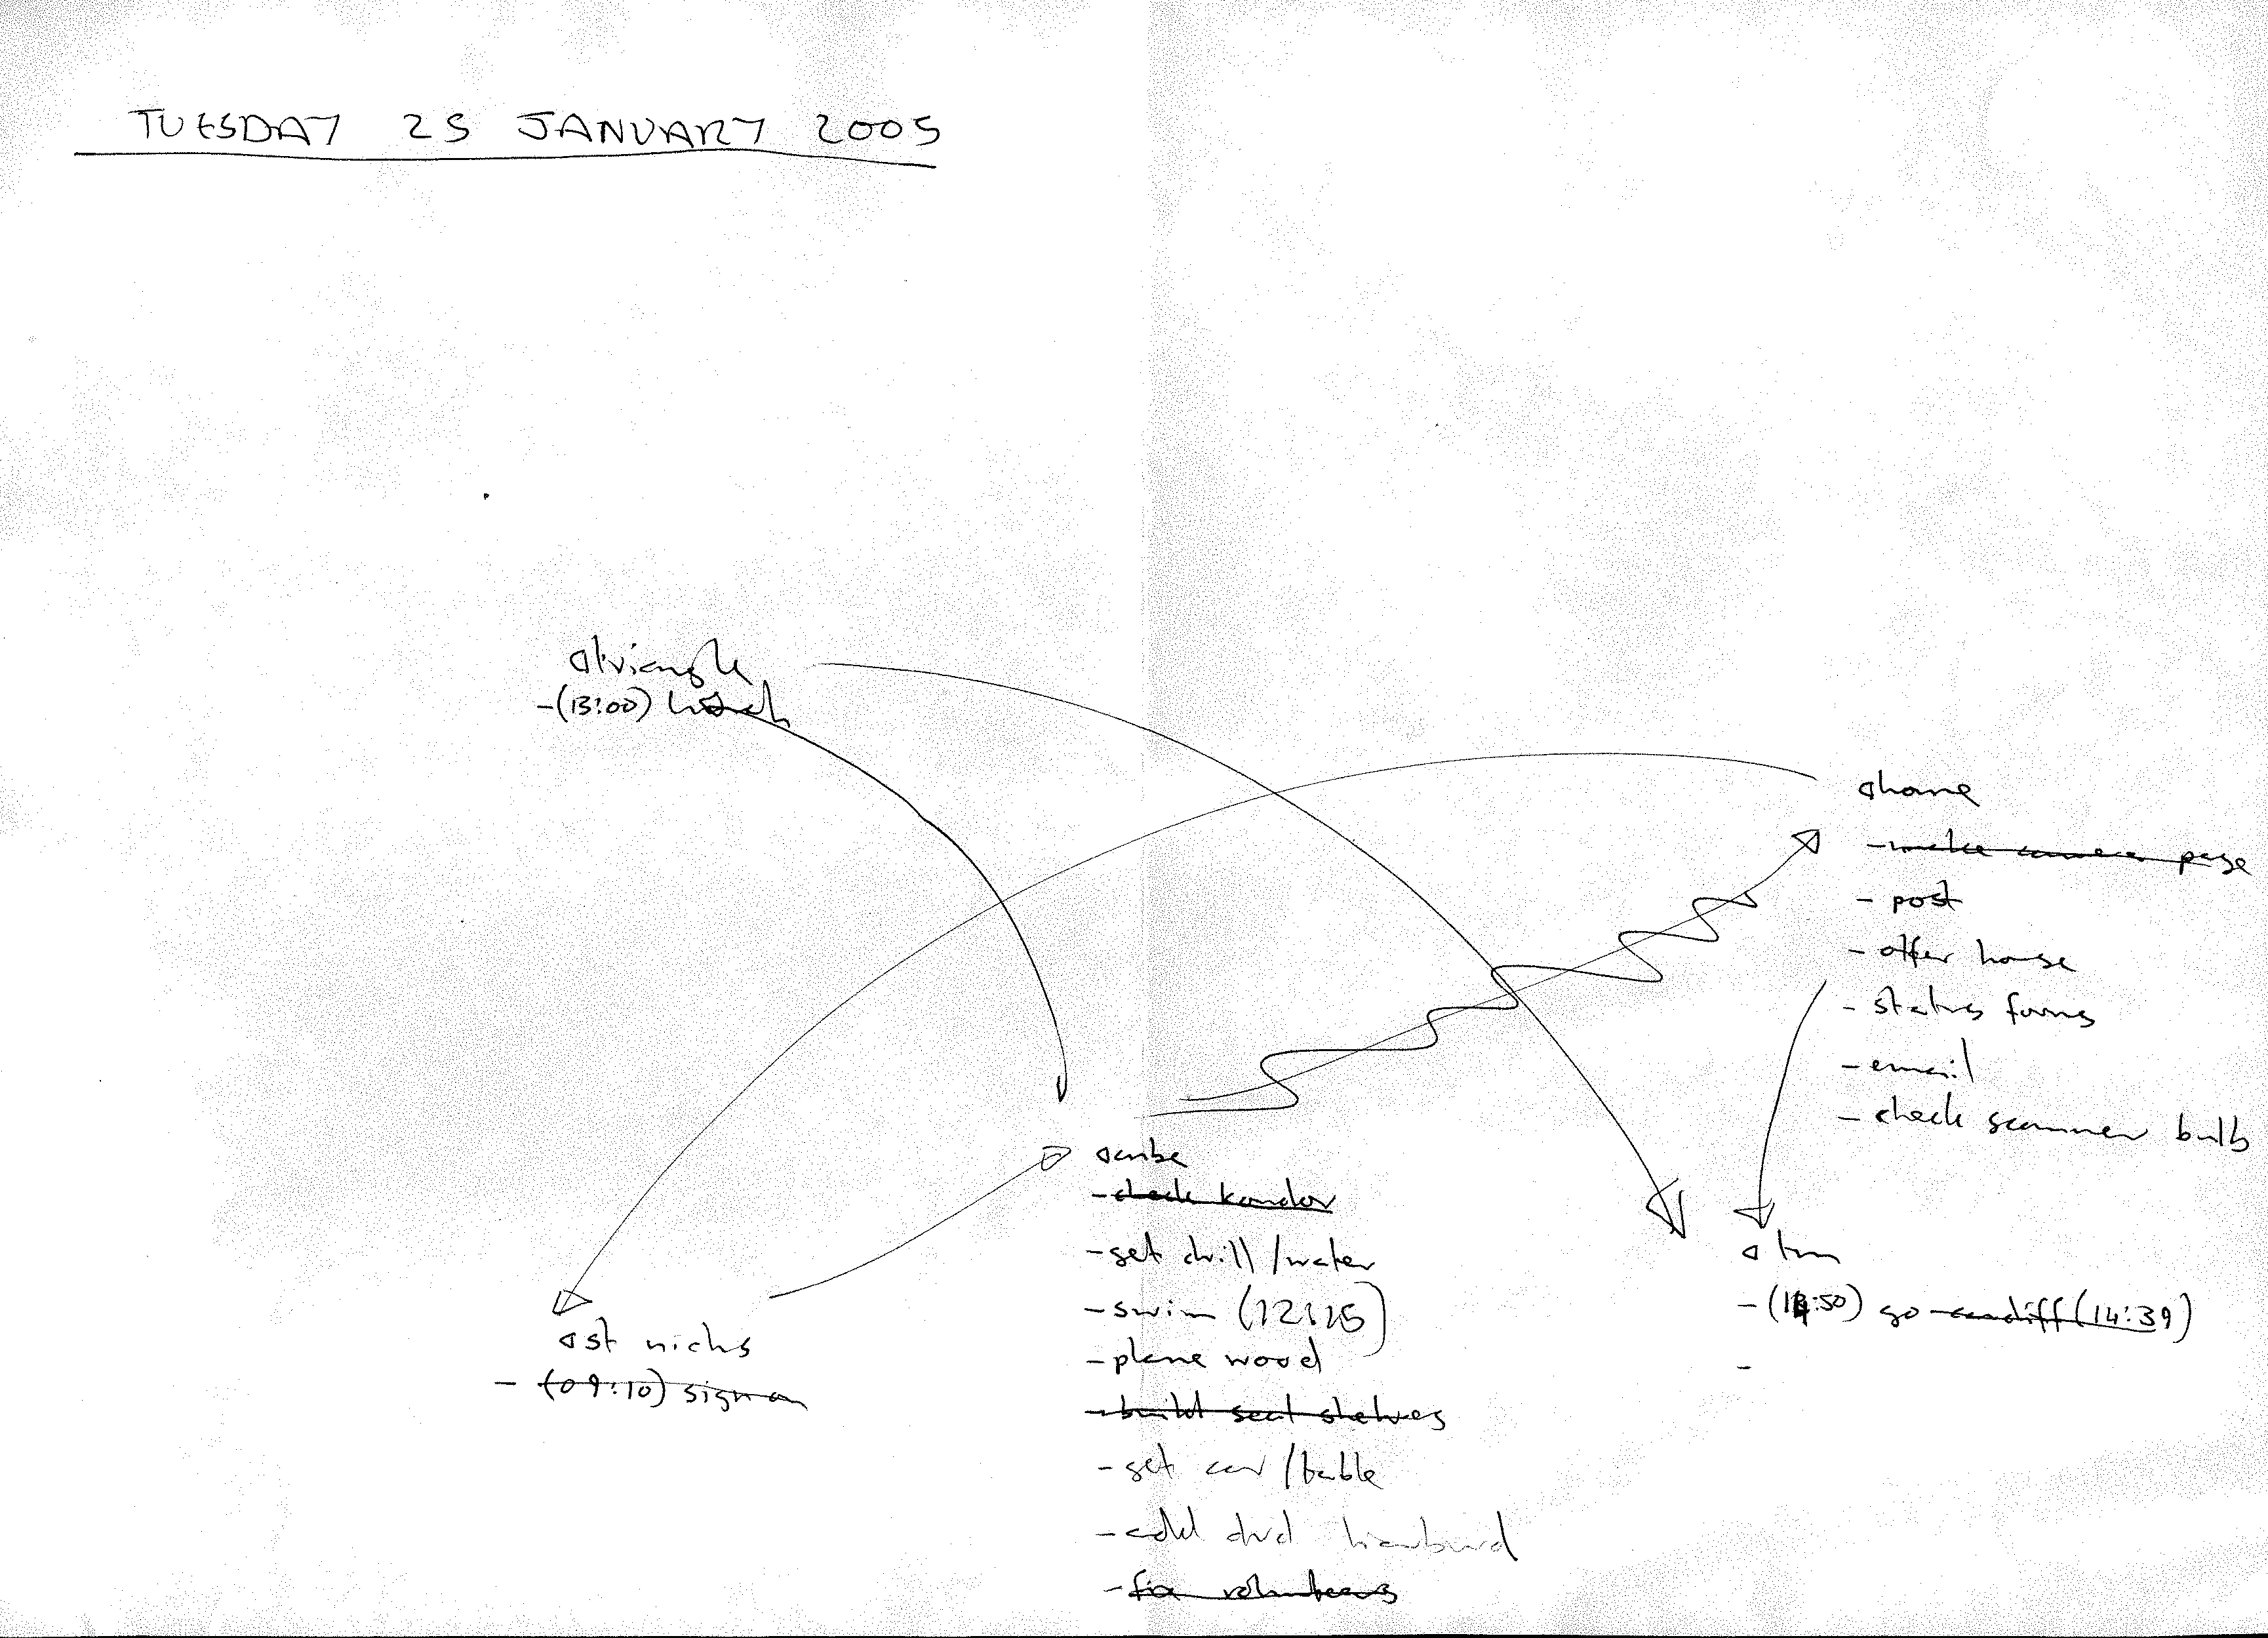 TUESDAY 25 JANUARY 2005
triangle
-(13:00) lunch
home
- make camera page
- post
- offer house
- status forms
- email
- check scanner bulb
cube
- check kondor
- get drill/water
- swim (12:15)
- plane wood
- build seat shelves
- get car/table
- add dvd
- fix volunteers
st nicks
- (09:10) sign on
- (1:50) go cardiff (14:39)
-